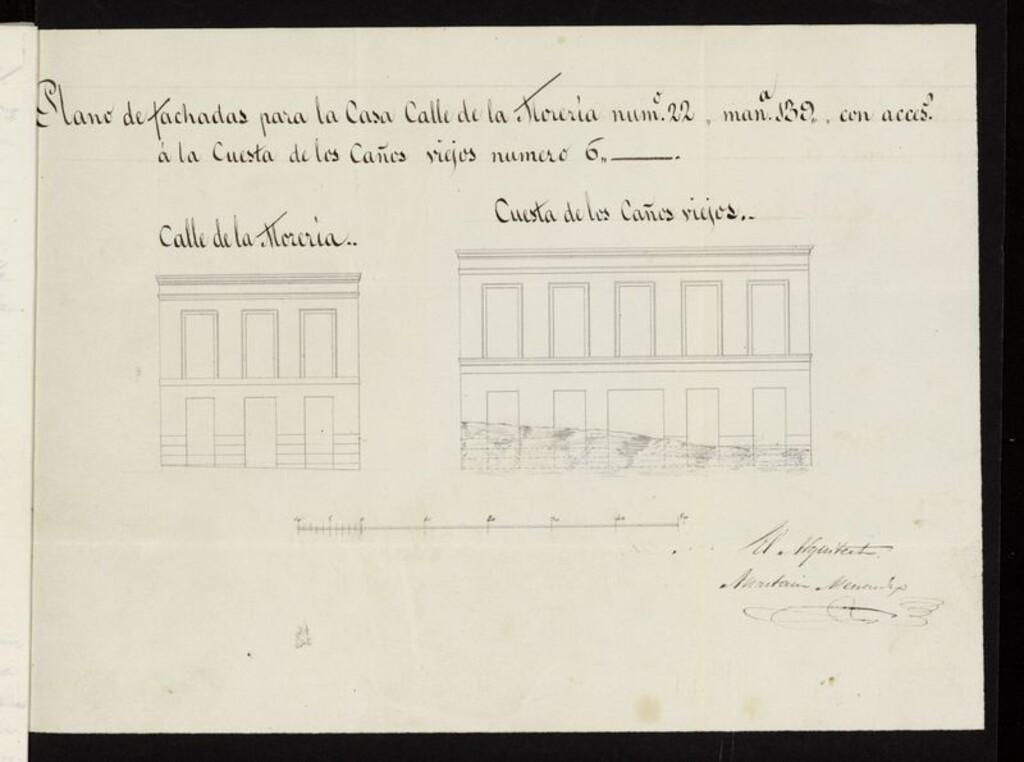 Plano de fachadas para la Casa Calle de la Morería num.º 22, man.ª 132, con acces.º
á la Cuesta de los Caños viejos numero 6,,
Calle de la Morería..
Cuesta de los Caños viejos..
El Arquitecto